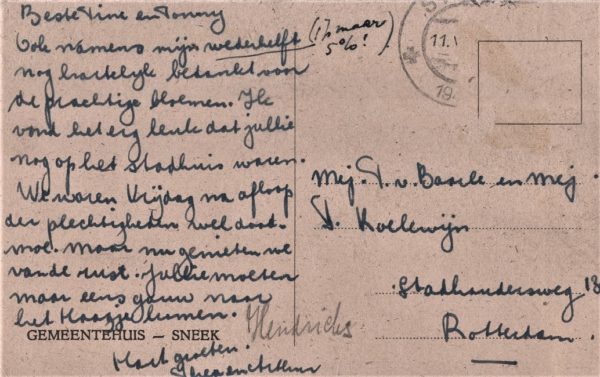 Beste Tine en Tonny
Ook namens mijn wederhelft (17, maar
5%!)
nog hartelijk bedankt voor
de prachtige bloemen. Ik
vond het erg leuk dat jullie
nog op het stadhuis waren.
We waren Vrijdag na afloop
der plechtigheden wel dood-
moe. maar nu genieten we
van de rust. Jullie moeten
maar eens gauw naar
het Haagje komen.
GEMEENTEHUIS — SNEEK
Hart. groeten.
Hendriks
11.
19
Mej. T. v. Baarle en Mej
T. Koelewijn
Stadhoudersweg 13
Rotterdam.